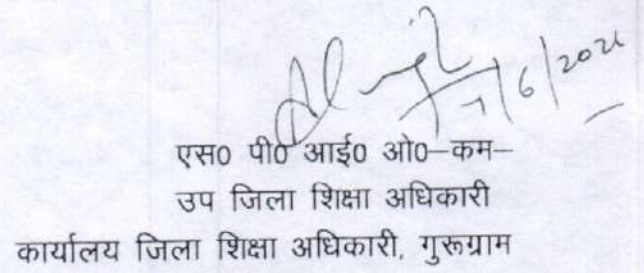 7/6/2021
एस0 पी0 आई0 ओ0–कम–
उप जिला शिक्षा अधिकारी
कार्यालय जिला शिक्षा अधिकारी, गुरूग्राम